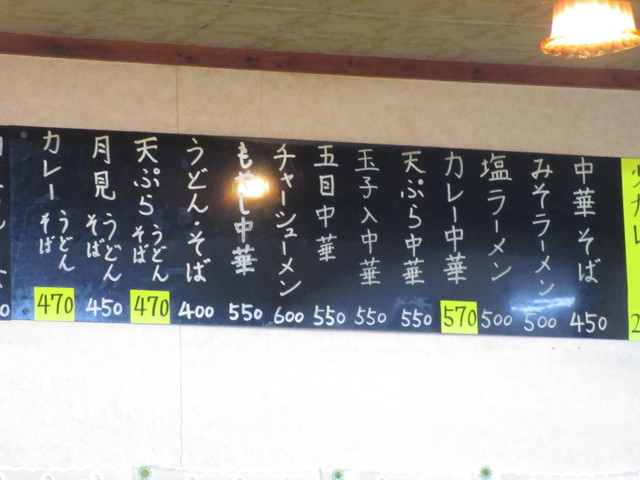 中華そば 450
みそラーメン 500
塩ラーメン 500
カレー中華 570
天ぷら中華 550
玉子入中華 550
五目中華 550
チャーシューメン 600
もやし中華 550
うどん・そば 400
天ぷら うどん そば 470
月見 うどん そば 450
カレー うどん そば 470